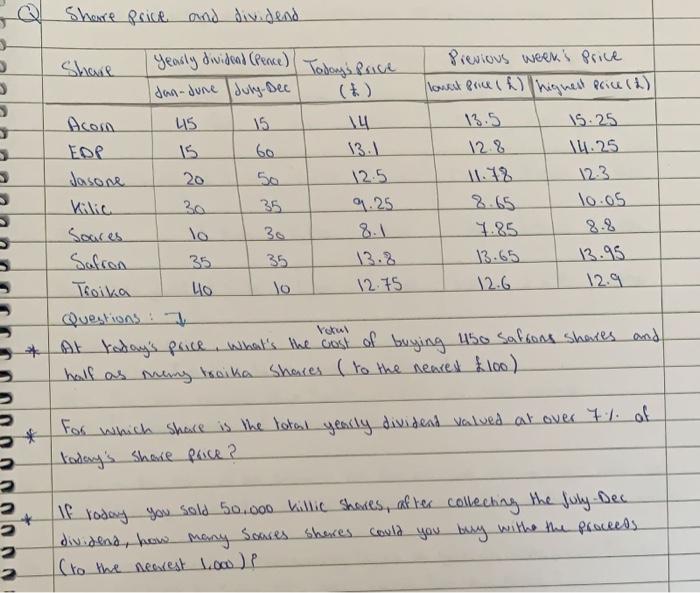 Q Share price and dividend
Share Yearly dividend (Pence) Today's Price (£) Previous week's Price
Jan-June July-Dec lowest Price (£) highest Price (£)
Acorn 45 15 14 13.5 15.25
EDP 15 60 13.1 12.8 14.25
Jasone 20 50 12.5 11.78 12.3
Kilic 30 35 9.25 8.65 10.05
Soares 10 30 8.1 7.85 8.8
Safron 35 35 13.8 13.65 13.95
Troika 40 10 12.75 12.6 12.9
Questions : ↓
* At today's price, what's the total cost of buying 450 Safrons shares and
half as many troika shares (to the nearest £100)
* For which share is the total yearly dividend valued at over 7% of
today's share price?
* If today you sold 50,000 killic shares, after collecting the July-Dec
dividend, how many Soares shares could you buy withe the proceeds
(to the nearest 1,000)?